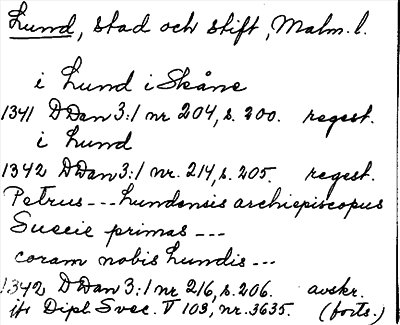 Lund, stad och stift, Malm. l.
i Lund i Skåne
1341 DDan 3:1 nr 204, s. 200. regest.
i Lund
1342 DDan 3:1 nr. 214, s. 205. regest.
Petrus --- Lundensis archiepiscopus
Suecie primas ---
coram nobis Lundis ---
1342 DDan 3:1 nr 216, s. 206. avskr.
jfr Dipl Svec. V 109, nr. 3635. (forts.)